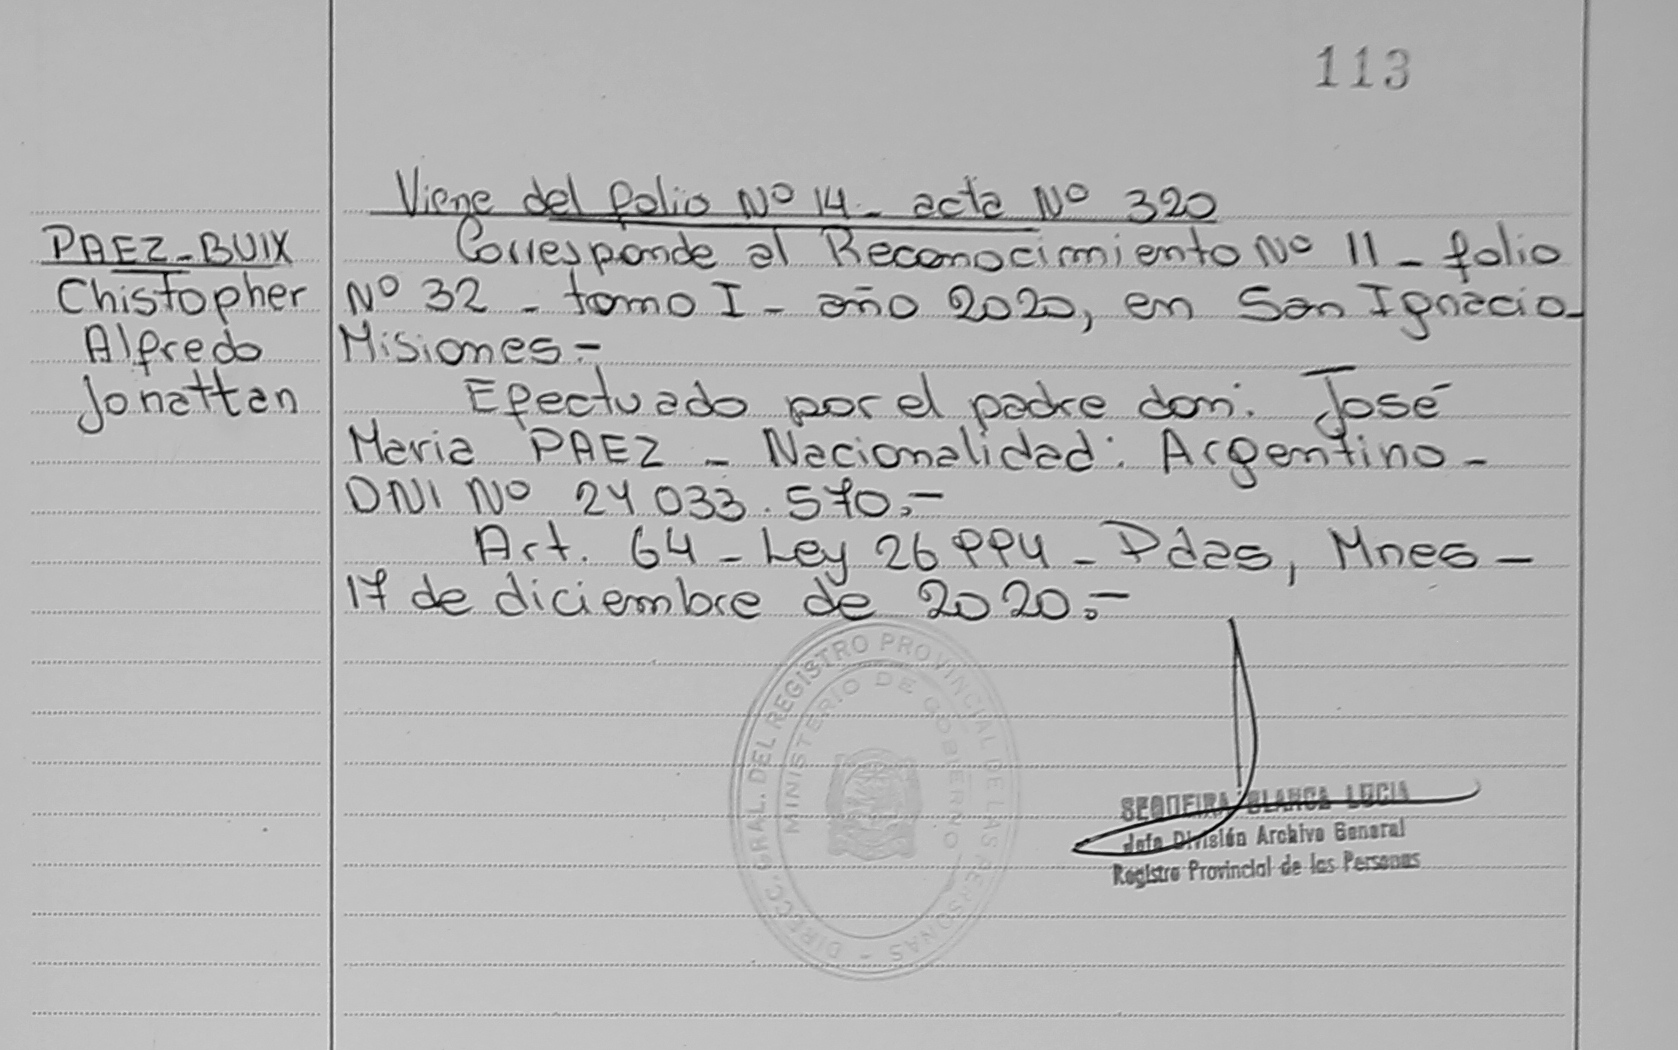 113
Viene del folio Nº 14 - acta Nº 320
PAEZ-BUIX
Chistopher
Alfredo
Jonattan
Corresponde al Reconocimiento Nº 11 - folio
Nº 32 - tomo I - año 2020, en San Ignacio-
Misiones.-
Efectuado por el padre don: José
Maria PAEZ - Nacionalidad: Argentino -
DNI Nº 24 033.570.-
Art. 64 - Ley 26 994 - Pdas, Mnes -
17 de diciembre de 2020.-
DIRECC. GRAL. DEL REGISTRO PROVINCIAL DE LAS PERSONAS -
MINISTERIO DE GOBIERNO
SEQUEIRA BLANCA LUCIA
Jefe División Archivo General
Registro Provincial de las Personas